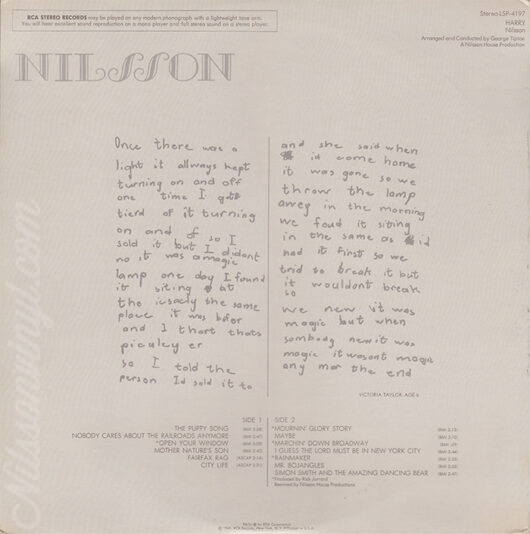 RCA STEREO RECORDS may be played on any modern phonograph with a lightweight tone arm.
You will hear excellent sound reproduction on a mono player and full stereo sound on a stereo player.
Stereo LSP-4197
HARRY
Nilsson
Arranged and Conducted by George Tipton
A Nilsson House Production
NILSSON
Once there was a
light it allways kept
turning on and off
one time I got
tierd of it turning
on and of so I
sold it but I didant
no it was a magic
lamp one day I found
it siting at
the icsacly the same
place it was bifor
and I thort thats
piculey er
so I told the
person Id sold it to
and she said when
id come home
it was gone so we
throw the lamp
awey in the morning
we foud it siting
in the same as id
had it first so we
trid to break it but
it wouldont break
so
we new it was
magic but when
sombody new it was
magic it wasant magic
any mor the end
VICTORIA TAYLOR AGE 6
SIDE 1
THE PUPPY SONG
NOBODY CARES ABOUT THE RAILROADS ANYMORE
*OPEN YOUR WINDOW
MOTHER NATURE'S SON
FAIRFAX RAG
CITY LIFE
SIDE 2
*MOURNIN' GLORY STORY
MAYBE
*MARCHIN' DOWN BROADWAY
I GUESS THE LORD MUST BE IN NEW YORK CITY
*RAINMAKER
MR. BOJANGLES
SIMON SMITH AND THE AMAZING DANCING BEAR
*Produced by Rick Jarrard
Reserved by Nilsson House Productions